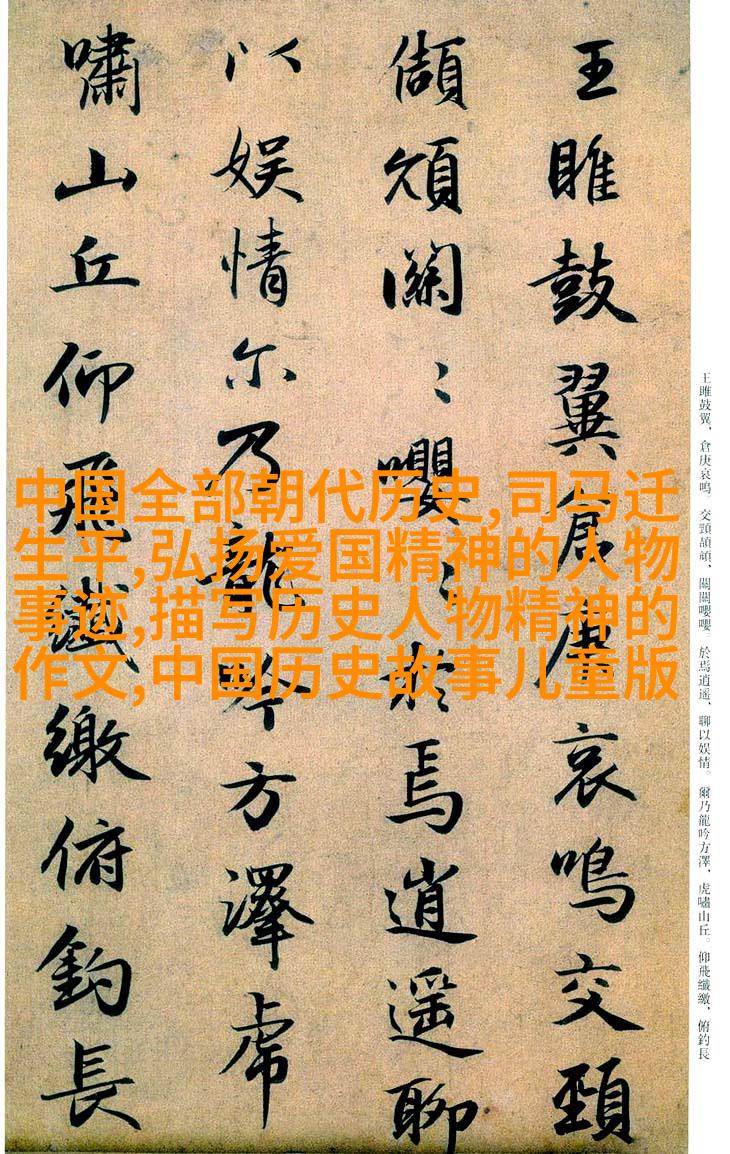 王雎鼓翼倉庚哀鳴交頸
頡頏關〻嚶〻於焉逍遥聊
以娱情尔乃龍吟方澤虎
嘯山丘仰飛纖繳俯釣長
中国全部朝代历史,司马迁
生平,弘扬爱国精神的人物
事迹,描写历史人物精神的
作文,中国历史故事儿童版
王雎鼓翼、倉庚哀鳴。交頸頡頏、關關嚶嚶。於焉逍遥、聊以娱情。爾乃龍吟方澤、虎嘯山丘。仰飛纖繳、俯釣長